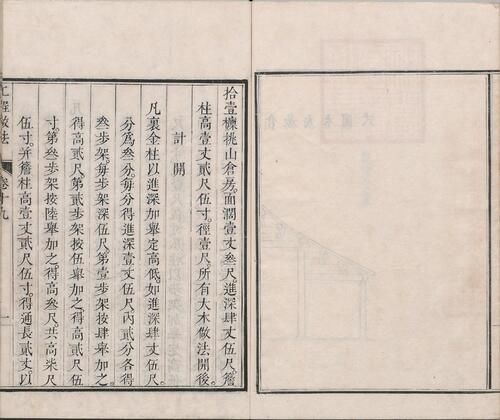 拾壹檁挑山倉房面濶壹丈叁尺進深肆丈伍尺簷
柱高壹丈貳尺伍寸徑壹尺所有大木做法開後
計開
凡裏金柱以進深加舉定高低如進深肆丈伍尺
分爲叁分每分得進深壹丈伍尺內貳分各得
叁步架每步架深伍尺第壹步架按肆舉加之
得高貳尺第貳步架按伍舉加之得高貳尺伍
寸第叁步架按陸舉加之得高叁尺共高柒尺
伍寸并簷柱高壹丈貳尺伍寸得通長貳丈以
工程做法
卷十九
一